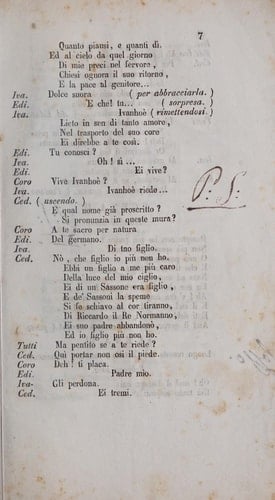 7
Quanto piansi, e quanti dì.
Ed al cielo da quel giorno
Di mie preci nel fervore,
Chiesi ognora il suo ritorno,
E la pace al genitore...
Iva. Dolce suora ( per abbracciarla. )
Edi. E che! tu... ( sorpresa. )
Iva. Ivanhoè ( rimettendosi. )
Lieto in sen di tanto amore,
Nel trasporto del suo core
Ei direbbe a te così.
Edi. Tu conosci ?
Iva. Oh ! sì ...
Edi. Ei vive?
Coro Vive Ivanhoè ?
Iva. Ivanhoè riede...
Ced. ( uscendo. )
E qual nome già proscritto ?
Si pronunzia in queste mura?
Coro A te sacro per natura
Edi. Del germano.
Iva. Di tuo figlio.
Ced. Nò, che figlio io più non ho.
Ebbi un figlio a me più caro
Della luce del mio ciglio,
Ei di un Sassone era figlio,
E de' Sassoni la speme
Si fe schiavo al cor tiranno,
Di Riccardo il Re Normanno,
Ei suo padre abbandonò,
Ed io figlio più non ho.
Tutti Ma pentito se a te riede ?
Ced. Quì portar non osi il piede.
Coro Deh ! ti placa.
Edi. Padre mio.
Iva- Gli perdona.
Ced. Ei tremi.
P. S.